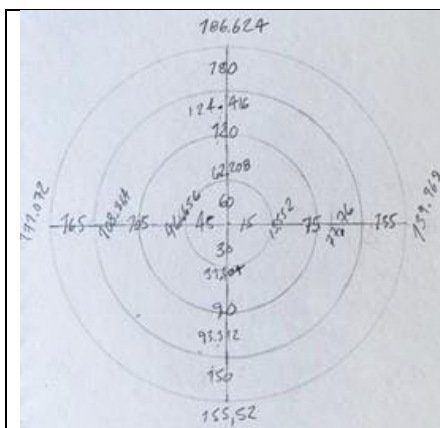 186.624
180
124.416
120
62.208
60
171.072 165 108.864 105 46.656 45 15 15552 75 77.76 135 139.968
30
31.104
90
93.312
150
155,52